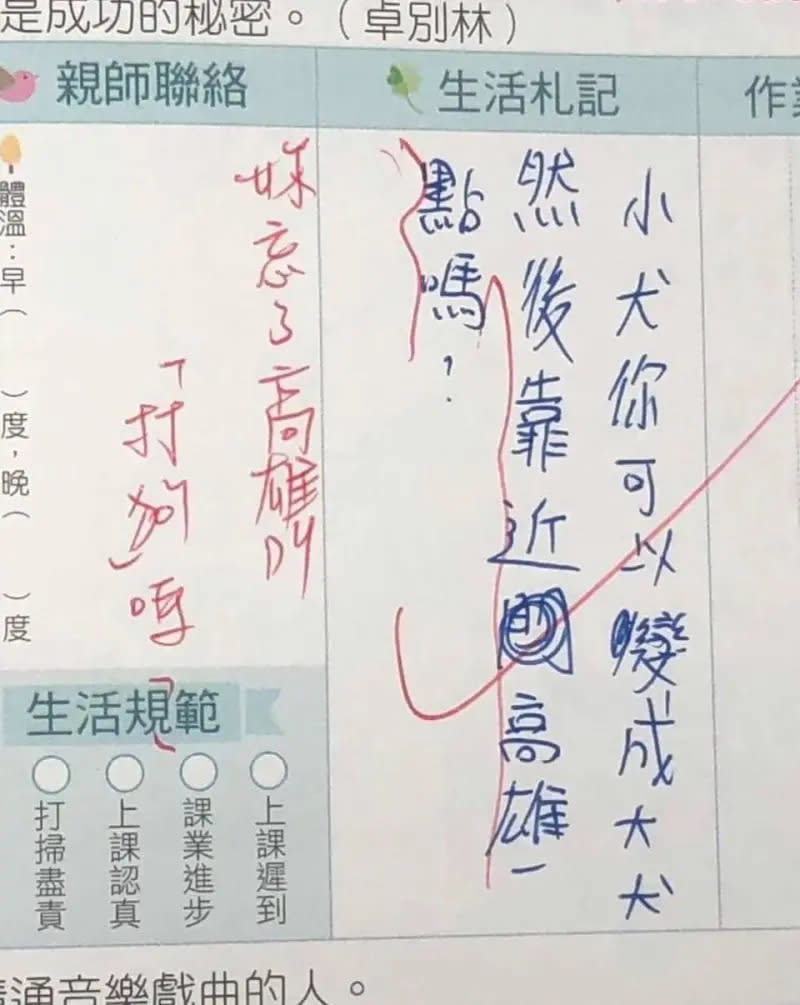 是成功的秘密。（卓別林）
親師聯絡
生活札記
作
小犬你可以變成大犬
然後靠近高雄一
點嗎？
忘了高雄叫
「打狗」
體溫：早（　）度，晚（　）度
生活規範
上課遲到
課業進步
上課認真
打掃盡責
通音樂戲曲的人。